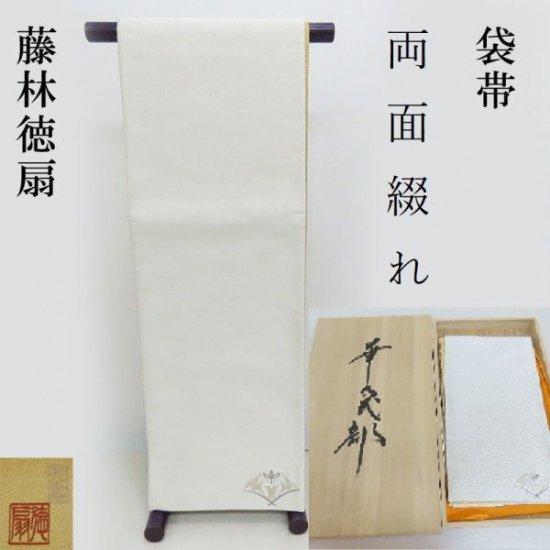 袋帯
両面綴れ
藤林徳扇
徳扇